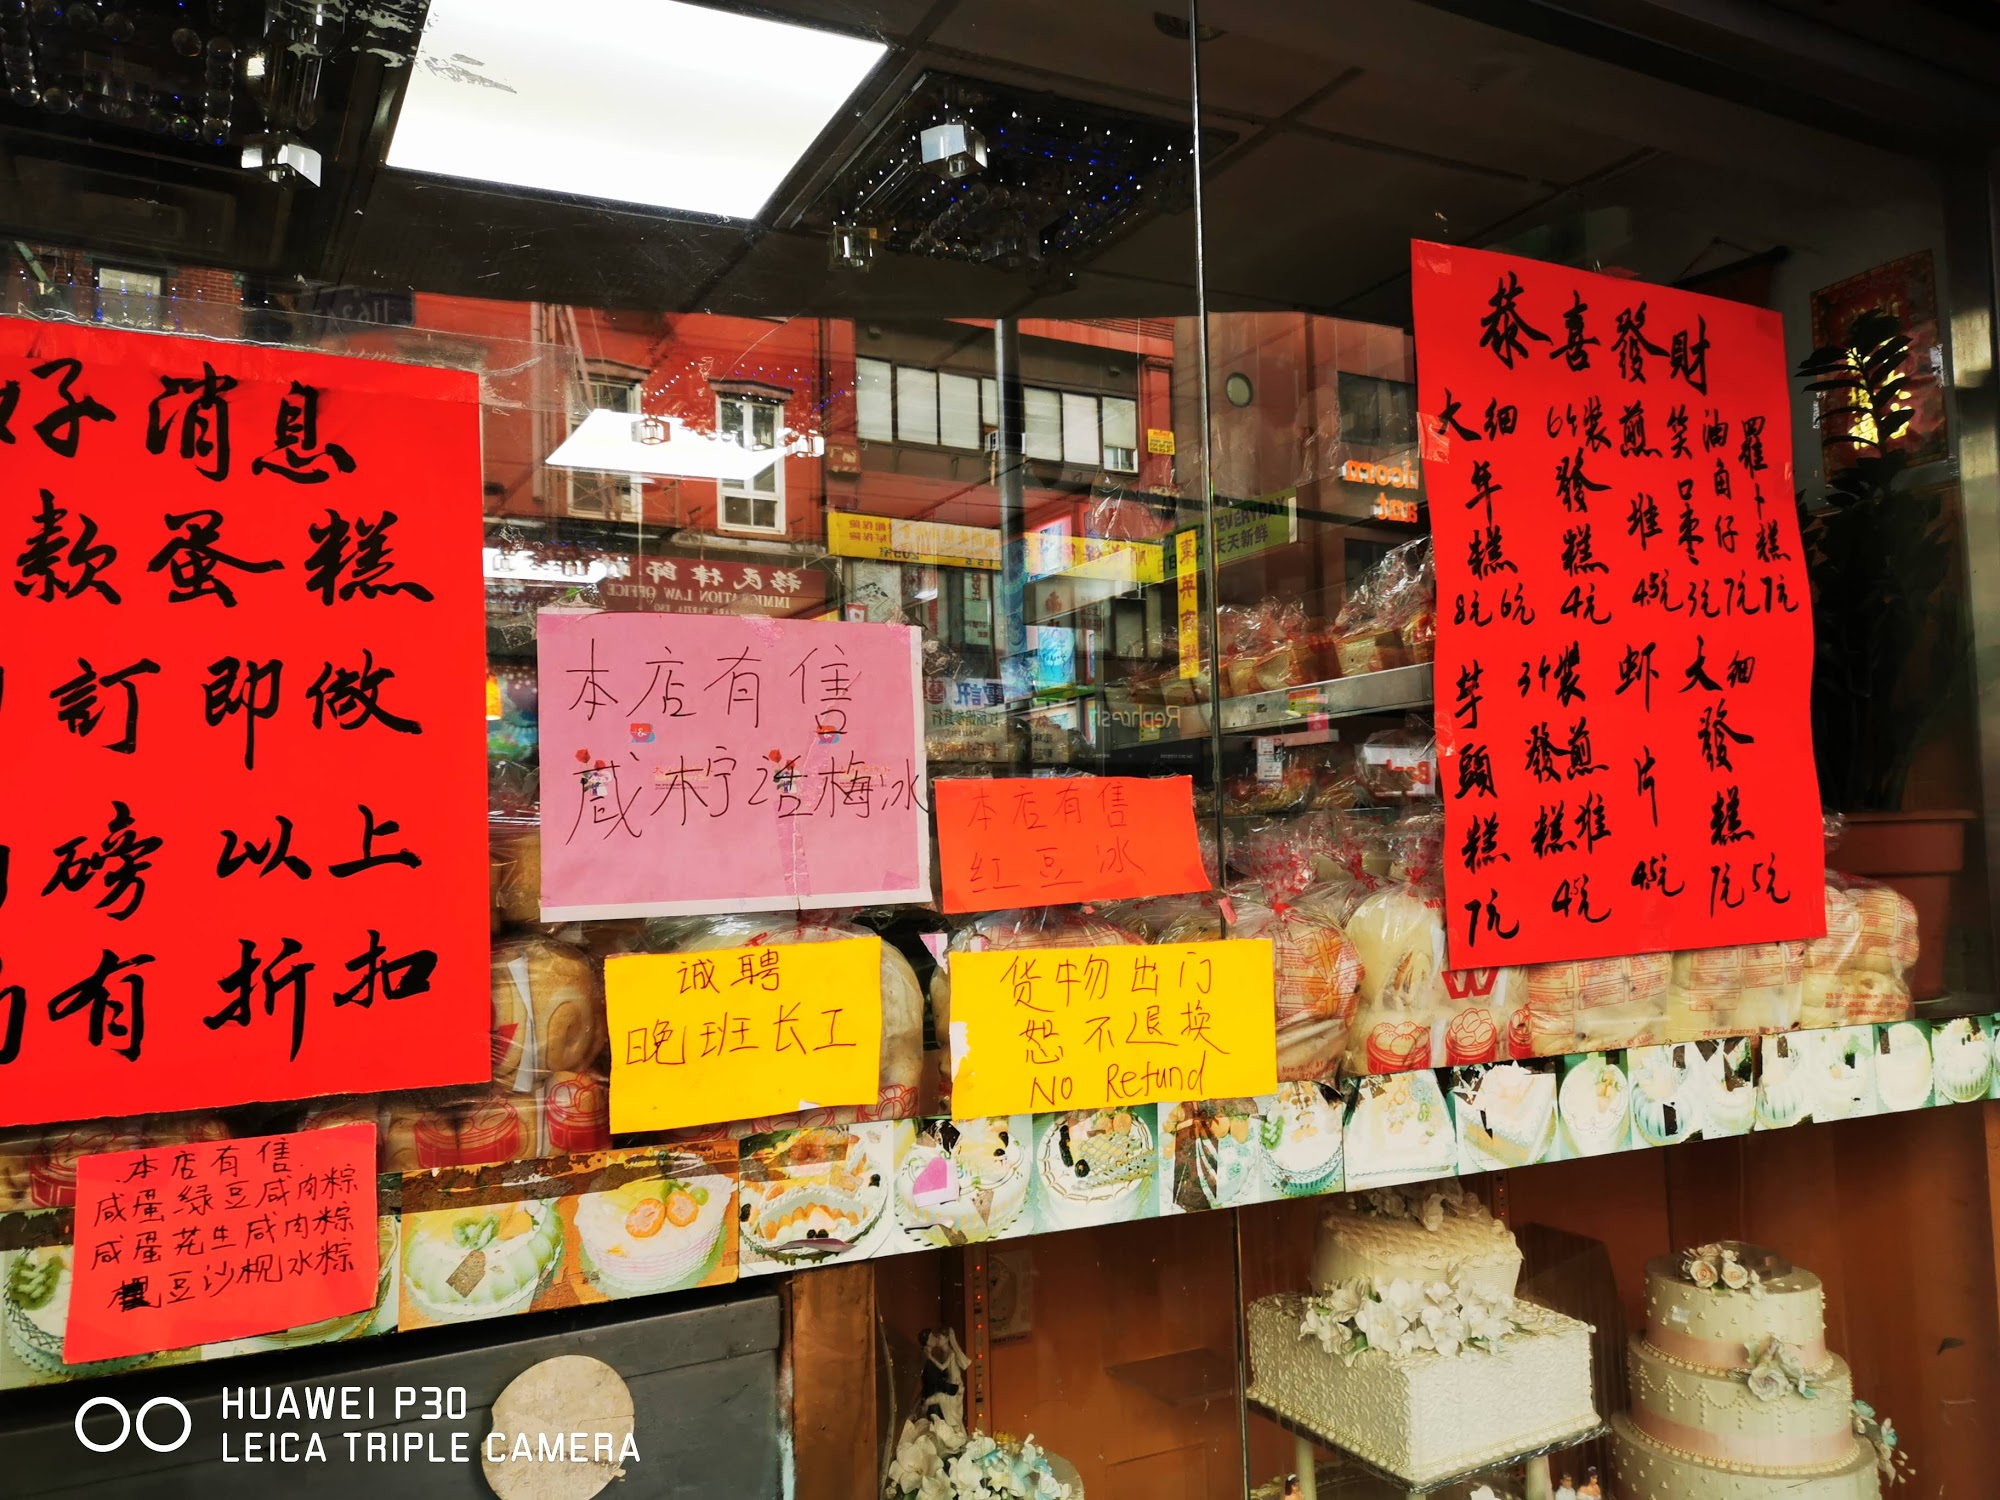 好消息
款蛋糕
訂即做
磅以上
有折扣
本店有售
咸蛋绿豆咸肉粽
咸蛋花生咸肉粽
豆沙枧水粽
本店有售
咸柠话梅冰
本店有售
红豆冰
诚聘
晚班长工
货物出门
恕不退换
No Refund
恭喜發財
大細年糕 8元 6元
6个装發糕 4元
煎堆 4.5元
笑口枣 3元
油角仔 7元
羅卜糕 7元
芋頭糕 7元
3个裝發糕煎堆 4.5元
虾片 4.5元
大細發糕 7元 5元
移民律師
IMMIGRATION LAW OFFICE
天天新鲜
電訊
HUAWEI P30
LEICA TRIPLE CAMERA